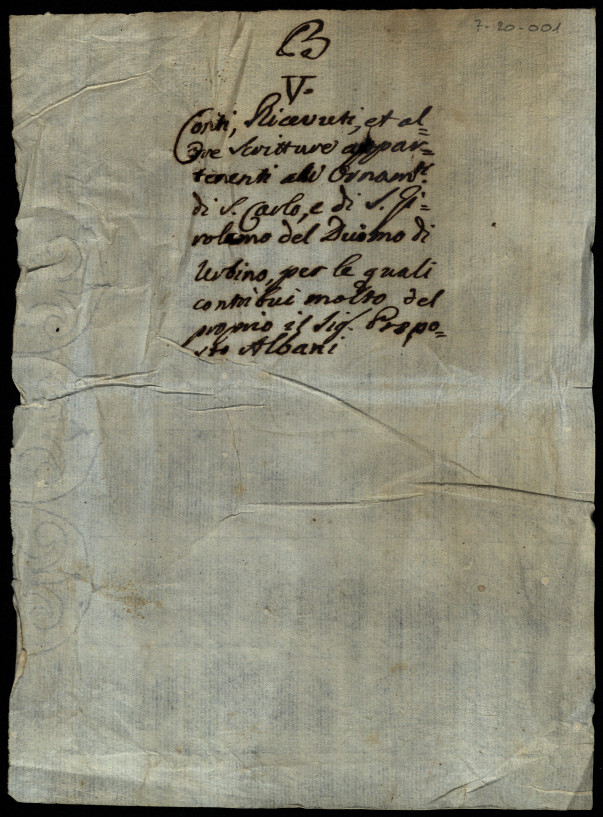 7-20-001
B
V.
Conti, Ricevuti, et al=
tre Scritture appar=
tenenti alli Ornamti.
di S. Carlo, e di S. Gi=
rolamo del Duomo di
Urbino, per le quali
contribuì molto del
proprio il Sig. Propo=
sto Albani